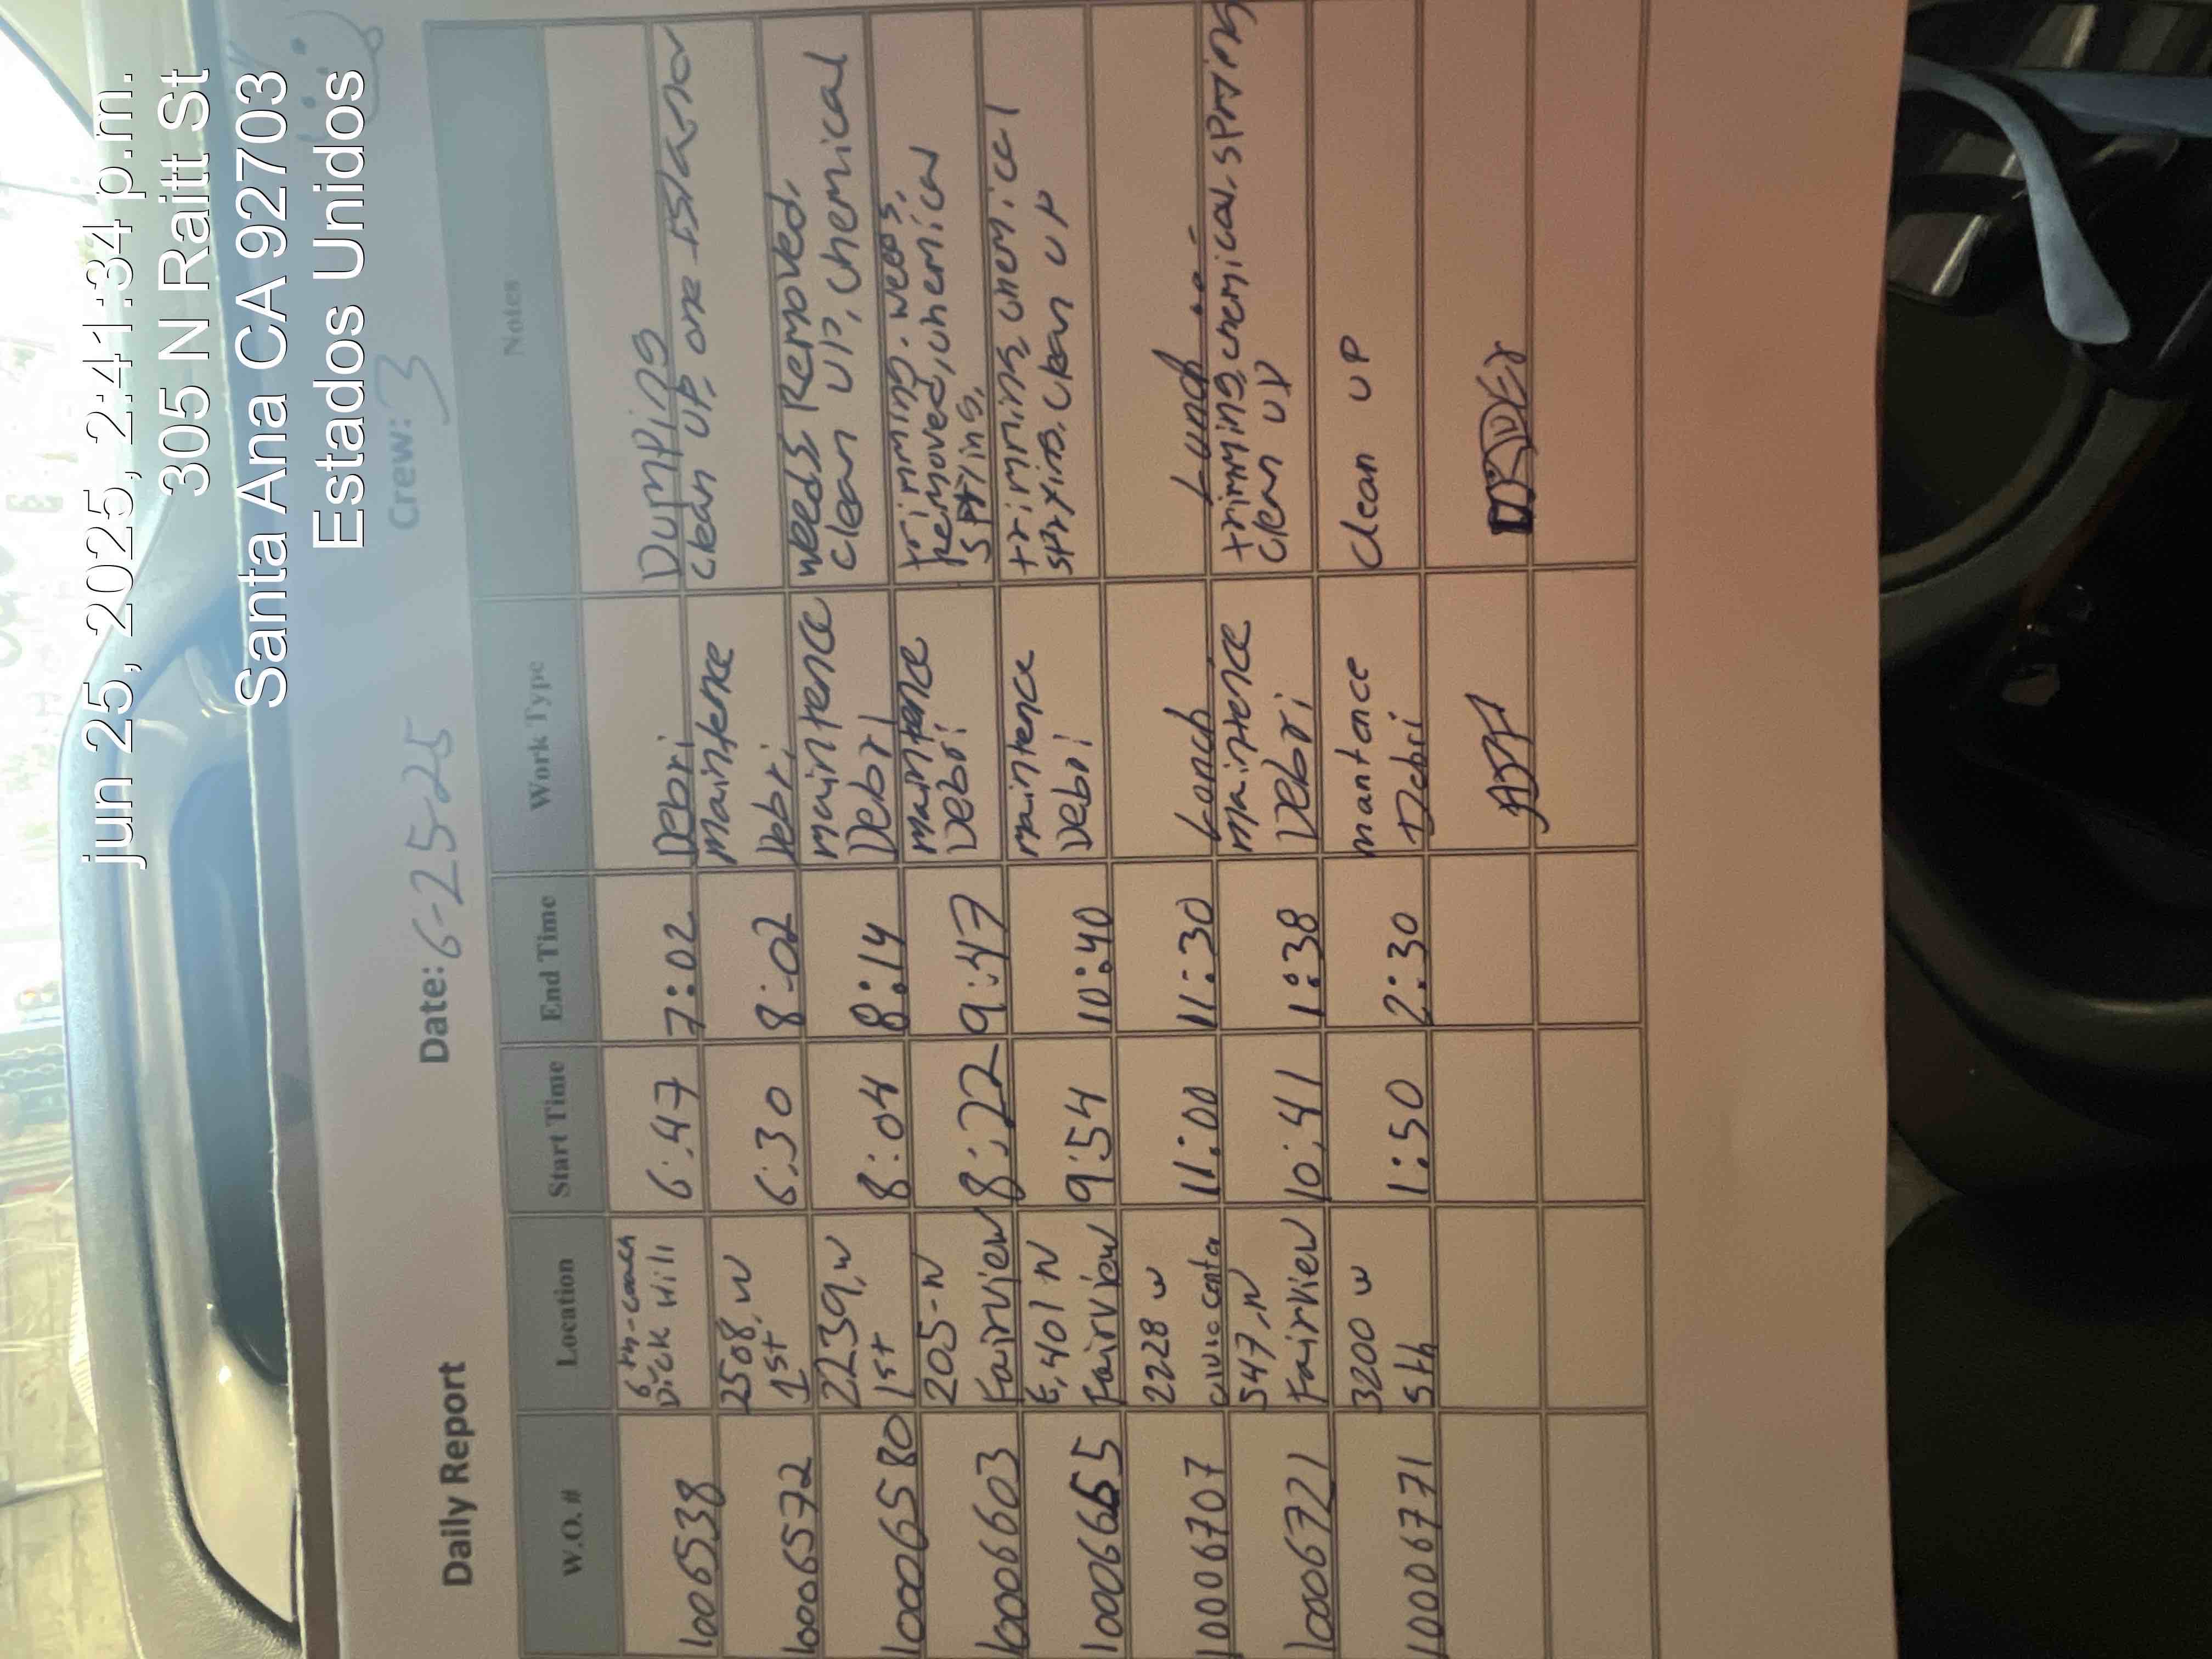 jun 25, 2025, 2:41:34 p.m.
305 N Raitt St
Santa Ana CA 92703
Estados Unidos
Daily Report Date: 6-25-25 Crew: 3
W.O.# Location Start Time End Time Work Type Notes
1006538 6th-coach Dick Hill 6:47 7:02 Debri Dumping
10006572 2508, W 1st 6:30 8:02 maintence Debri clean up, one Island
10006580 2239, W 1st 8:04 8:14 maintence Debri weeds Removed, clean up, chemical
10006603 205-N Fairview 8:22 9:47 maintence Debri trimming. weeds, Removed, chemical
10006665 401 N Fairview 9:54 10:40 maintence Debri trimming, chemical clean up
10006707 2228 w civic centa 11:00 11:30 Lonch Lunch
10006721 547, N Fairview 10:41 1:38 maintence Debri trimming, chemical, clean up
10006771 3200 w 5th 1:50 2:30 mantance Debri clean up